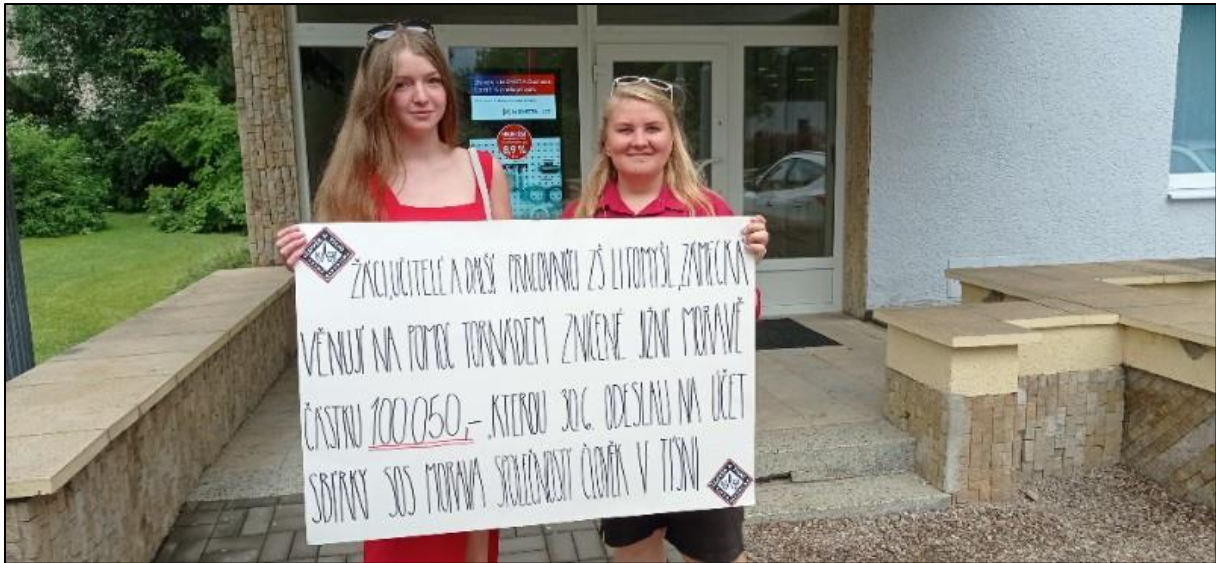 ŽÁCI, UČITELÉ A DALŠÍ PRACOVNÍCI ZŠ LITOMYŠL, ZÁMECKÁ
VĚNUJÍ NA POMOC TORNÁDEM ZNIČENÉ JIŽNÍ MORAVĚ
ČÁSTKU 100 050,- , KTEROU 30.6. ODESLALI NA ÚČET
SBÍRKY SOS MORAVA SPOLEČNOSTI ČLOVĚK V TÍSNI
8,9 %